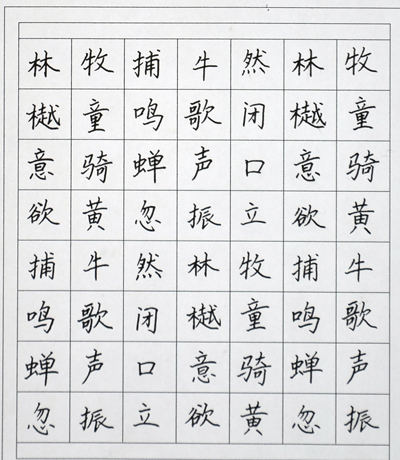 林牧捕牛然林牧
樾童鸣歌闭樾童
意骑蝉声口意骑
欲黄忽振立欲黄
捕牛然林牧捕牛
鸣歌闭樾童鸣歌
蝉声口意骑蝉声
忽振立欲黄忽振